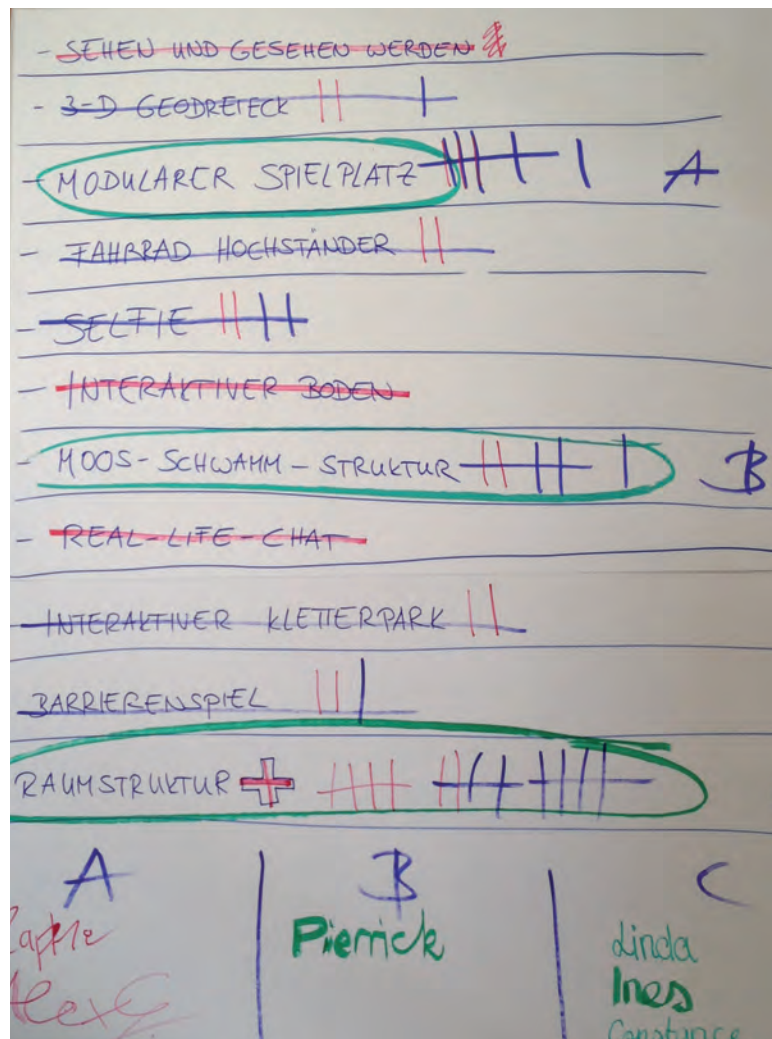 - SEHEN UND GESEHEN WERDEN
- 3-D GEODREIECK
- MODULARER SPIELPLATZ A
- FAHRRAD HOCHSTÄNDER
- SELFIE
- INTERAKTIVER BODEN
- MOOS-SCHWAMM-STRUKTUR B
- REAL-LIFE-CHAT
INTERAKTIVER KLETTERPARK
BARRIERENSPIEL
RAUMSTRUKTUR
A B C
Pierrick Linda
Ines
Constance